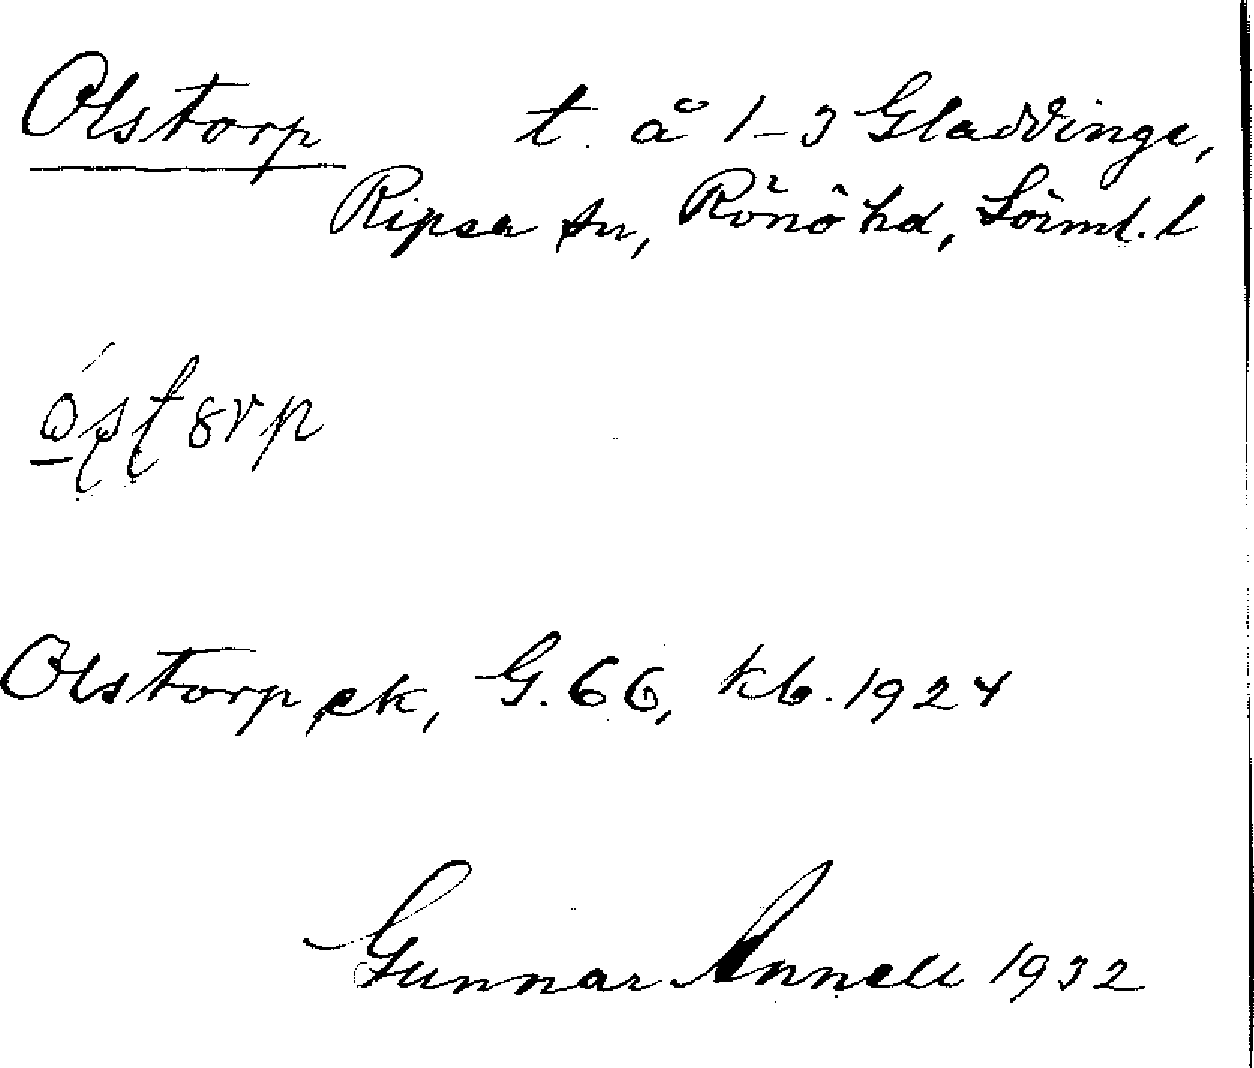 Olstorp t. å 1-3 Gladdinge,
Ripsa sn, Rönö hd, Sörml. l
Olstorp, ek, G. 66, kb. 1924
Gunnar Annell 1932